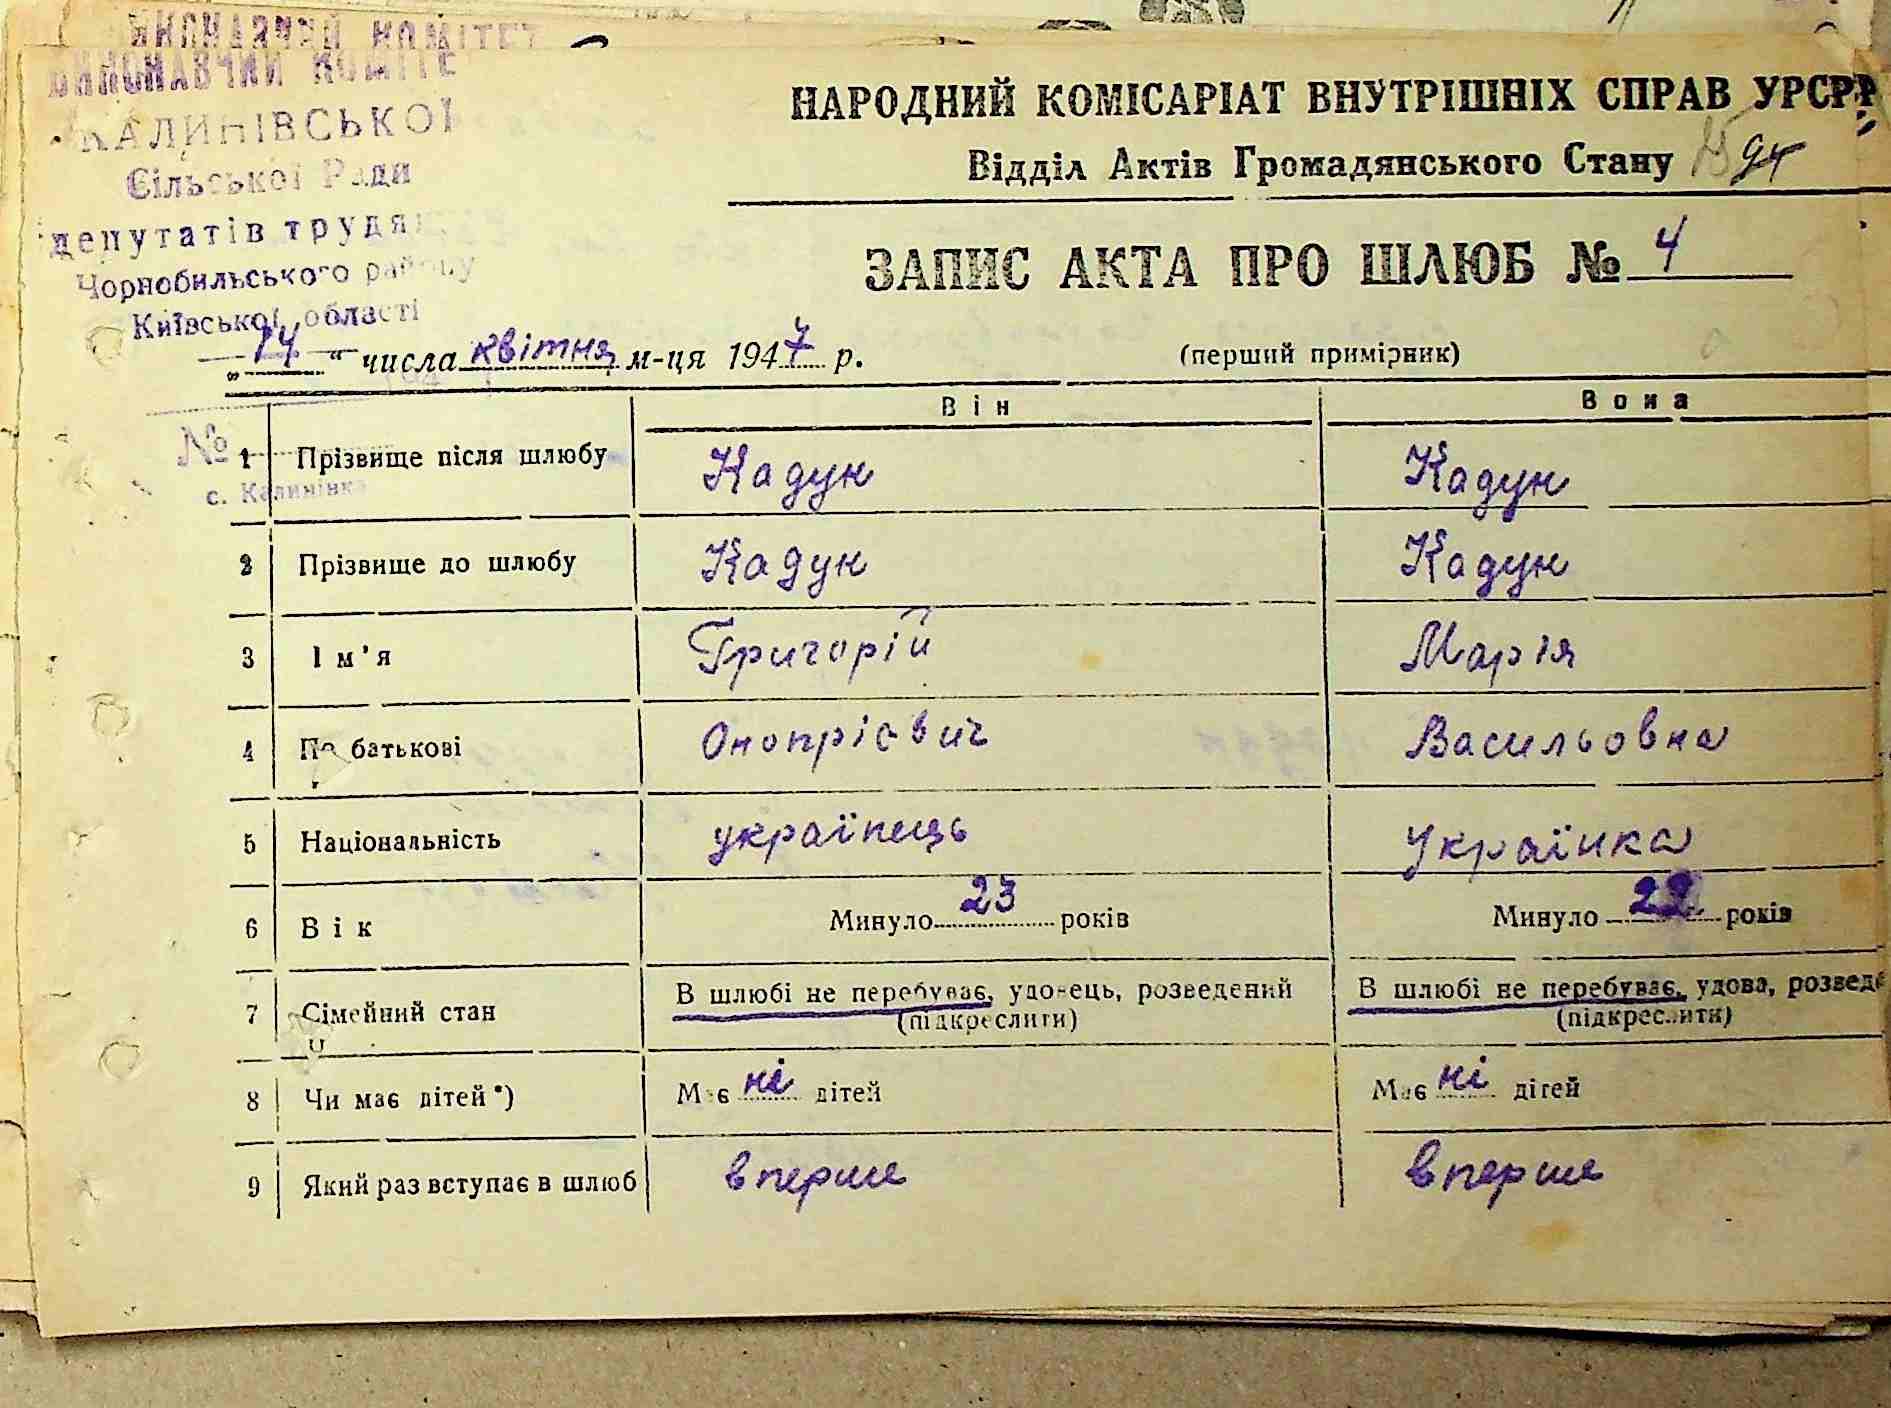 ВИКОНАВЧИЙ КОМІТЕТ
КАЛИНІВСЬКОЇ
Сільської Ради
депутатів трудящ
Чорнобильського району
Київської області
№
с. Калинівка
НАРОДНИЙ КОМІСАРІАТ ВНУТРІШНІХ СПРАВ УРСР
Відділ Актів Громадянського Стану
ЗАПИС АКТА ПРО ШЛЮБ № 4
„14“ числа квітня м-ця 1947 р. (перший примірник)
Він Вона
1 Прізвище після шлюбу Кадун Кадун
2 Прізвище до шлюбу Кадун Кадун
3 Ім’я Григорій Марія
4 По батькові Онопрієвич Васильовна
5 Національність українець Українка
6 Вік Минуло 23 років Минуло 22 років
7 Сімейний стан В шлюбі не перебуває, удовець, розведений В шлюбі не перебуває, удова, розведе
(підкреслити) (підкреслити)
8 Чи має дітей*) Має ні дітей Має ні дітей
9 Який раз вступає в шлюб вперше вперше